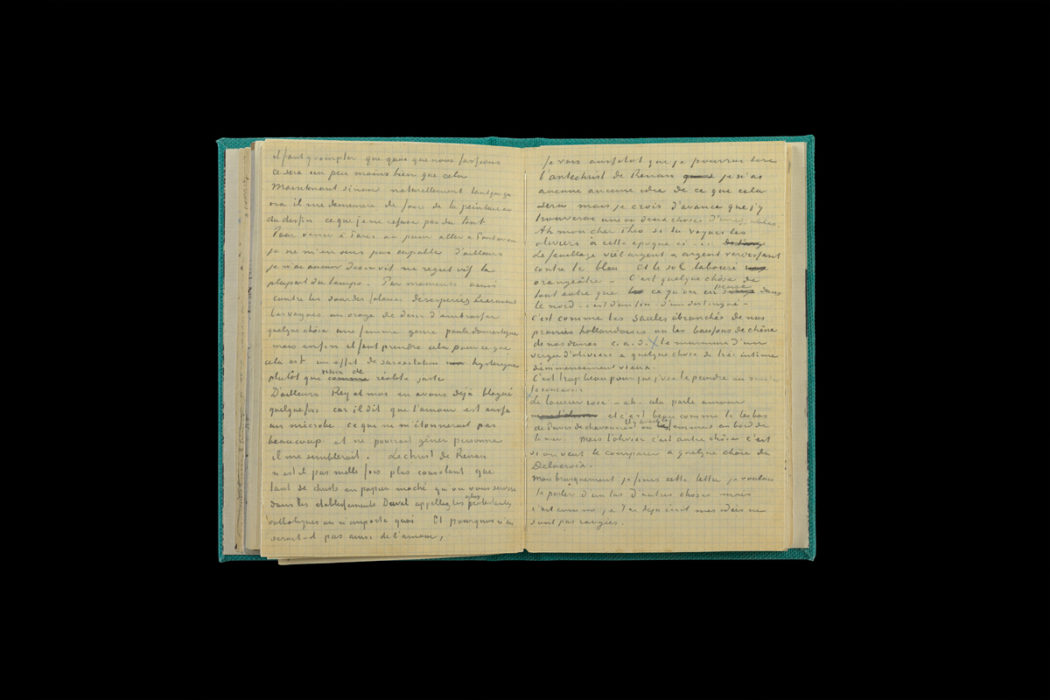 il faut y compter que quoi que nous fassions
ce sera un peu moins bien que cela
Maintenant sinon naturellement tant que je
il me demande de faire de la peinture ou
du dessin ce que je ne refuse pas du tout
Pour venir à Paris ou pour aller à Pontaven
je ne m'en sens pas capable d'ailleurs
je n'ai aucun desir vif ou regret vif la
plupart du temps. Par moments ainsi
contre les sourdes falaises desespérées s'ecrasent
les vagues un orage de desir d'embrasser
quelque chose une femme genre poule domestique
mais enfin il faut prendre cela pour ce que
cela est un effet de surexcitation hysterique
plutôt que vision de réalité juste
D'ailleurs Rey et moi en avons déjà blagué
quelquefois car il dit que l'amour est aussi
un microbe ce qui ne m'étonnerait pas
beaucoup et ne pourrait gêner personne
il me semblerait. Le Christ de Renan
n'est il pas mille fois plus consolant que
tant de christs en papier maché qu'on vous servira
dans les etablissements Duval appelés les eglises protestantes,
catholiques ou n'importe quoi Et pourquoi n'en
serait-il pas ainsi de l'amour,
je vais aussitot que je pourrai lire
l'antechrist de Renan je n'ai
aucune aucune idée de ce que cela
sera mais je crois d'avance que j'y
trouverai une ou deux choses
Ah mon cher Theo si tu voyais les
oliviers à cette epoque ci
Le feuillage vieil argent & argent verdissant
contre le bleu Et le sol labouré
orangeâtre – C'est quelque chose de
tout autre que ce qu'on en pense dans
le nord – c'est d'un fin – d'un distingué –
c'est comme les saules ébranchés de nos
prairies hollandaises ou les buissons de chêne
de nos dunes c.a.d. le murmure d'un
verger d'oliviers a quelque chose de très intime
d'immensement vieux
C'est trop beau pour que j'ose le peindre ou
concevoir
le laurier rose – ah – cela parle amour
et c'est beau comme le Lesbos
de Puvis de Chavannes où il y avait les femmes au bord de
la mer. Mais l'olivier c'est autre chose c'est
si on veut le comparer à quelque chose du
Delacroix.
Mais brusquement je finis cette lettre je voulais
te parler d'un tas d'autres choses mais
c'est comme je t'ai déjà écrit mes idées ne
sont pas rangées.